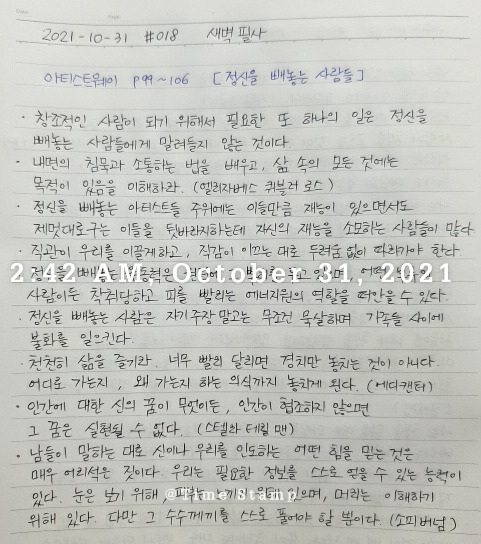 2021-10-31 #018 새벽 필사
아티스트웨이 p99~106 [정신을 빼놓는 사람들]
· 창조적인 사람이 되기 위해서 필요한 또 하나의 일은 정신을
빼놓는 사람들에게 말려들지 않는 것이다.
· 내면의 침묵과 소통하는 법을 배우고, 삶 속의 모든 것에는
목적이 있음을 이해하라. (엘리자베스 퀴블러 로스)
· 정신을 빼놓는 아티스트들 주위에는 이들만큼 재능이 있으면서도
제멋대로구는 이들을 뒷바라지하는데 자신의 재능을 소모하는 사람들이 많다
· 직관이 우리를 이끌게하고, 직감이 이끄는 대로 두려움 없이 따라가야 한다.
2:42 AM, October 31, 2021
정신을 빼놓는
사람이든 착취당하고 피를 빨리는 에너지원의 역할을 떠안을 수 있다.
· 정신을 빼놓는 사람은 자기주장 말고는 무조건 묵살하며 가족들 사이에
불화를 일으킨다.
· 천천히 삶을 즐기라. 너무 빨리 달리면 경치만 놓치는 것이 아니다.
어디로 가는지, 왜 가는지 하는 의식까지 놓치게 된다. (에디캔터)
· 인간에 대한 신의 꿈이 무엇이든, 인간이 협조하지 않으면
그 꿈은 실현될 수 없다. (스텔라 테릴 맨)
· 남들이 말하는 대로 신이나 우리를 인도하는 어떤 힘을 믿는 것은
매우 어리석은 짓이다. 우리는 필요한 정보를 스스로 얻을 수 있는 능력이
있다. 눈은 보기 위해 느끼기 위해 있으며, 머리는 이해하기
@Time Stamp
위해 있다. 다만 그 수수께끼를 스스로 풀어야 할 뿐이다. (소피버넘)